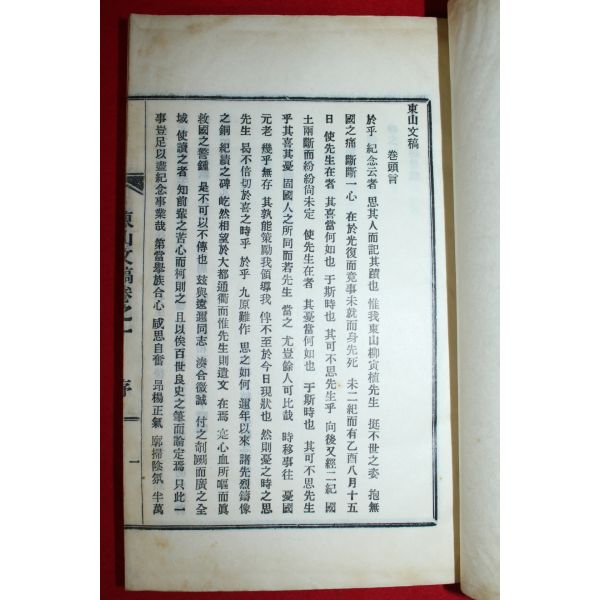 東山文稿
卷頭言
於乎 紀念云者 思其人而記其蹟也 惟我東山柳寅植先生 挺不世之姿 抱無
國之痛 斷斷一心 在於光復而竟事未就而身先死 未二紀而有乙酉八月十五
日 使先生在者 其喜當何如也 于斯時也 其可不思先生乎 向後又經二紀 國
土兩斷而紛紛尙未定 使先生在者 其憂當何如也 于斯時也 其可不思先生
乎 其喜其憂 固國人之所同而若先生 當之 尤豈餘人可比哉 時移事往 憂國
元老 幾乎無存 其孰能策勵我領導我 俾不至於今日現狀也 然則憂之時之思
先生 曷不倍切於喜之時乎 於乎 九原難作 思之如何 邇年以來 諸先烈鑄像
之銅 紀績之碑 屹然相望於大都通衢而惟先生則遺文 在焉 寔心血所嘔而眞
救國之警鍾 是不可以不傳也 玆與遠邇同志 湊合微誠 付之剞劂而廣之全
域 使讀之者 知前輩之苦心而柯則之 且以俟百世良史之筆而論定焉 只此一
事豈足以盡紀念事業哉 第當擧族合心 感思自奮 昻揚正氣 廓掃陰氛 半萬
東山文稿卷之一 序 一